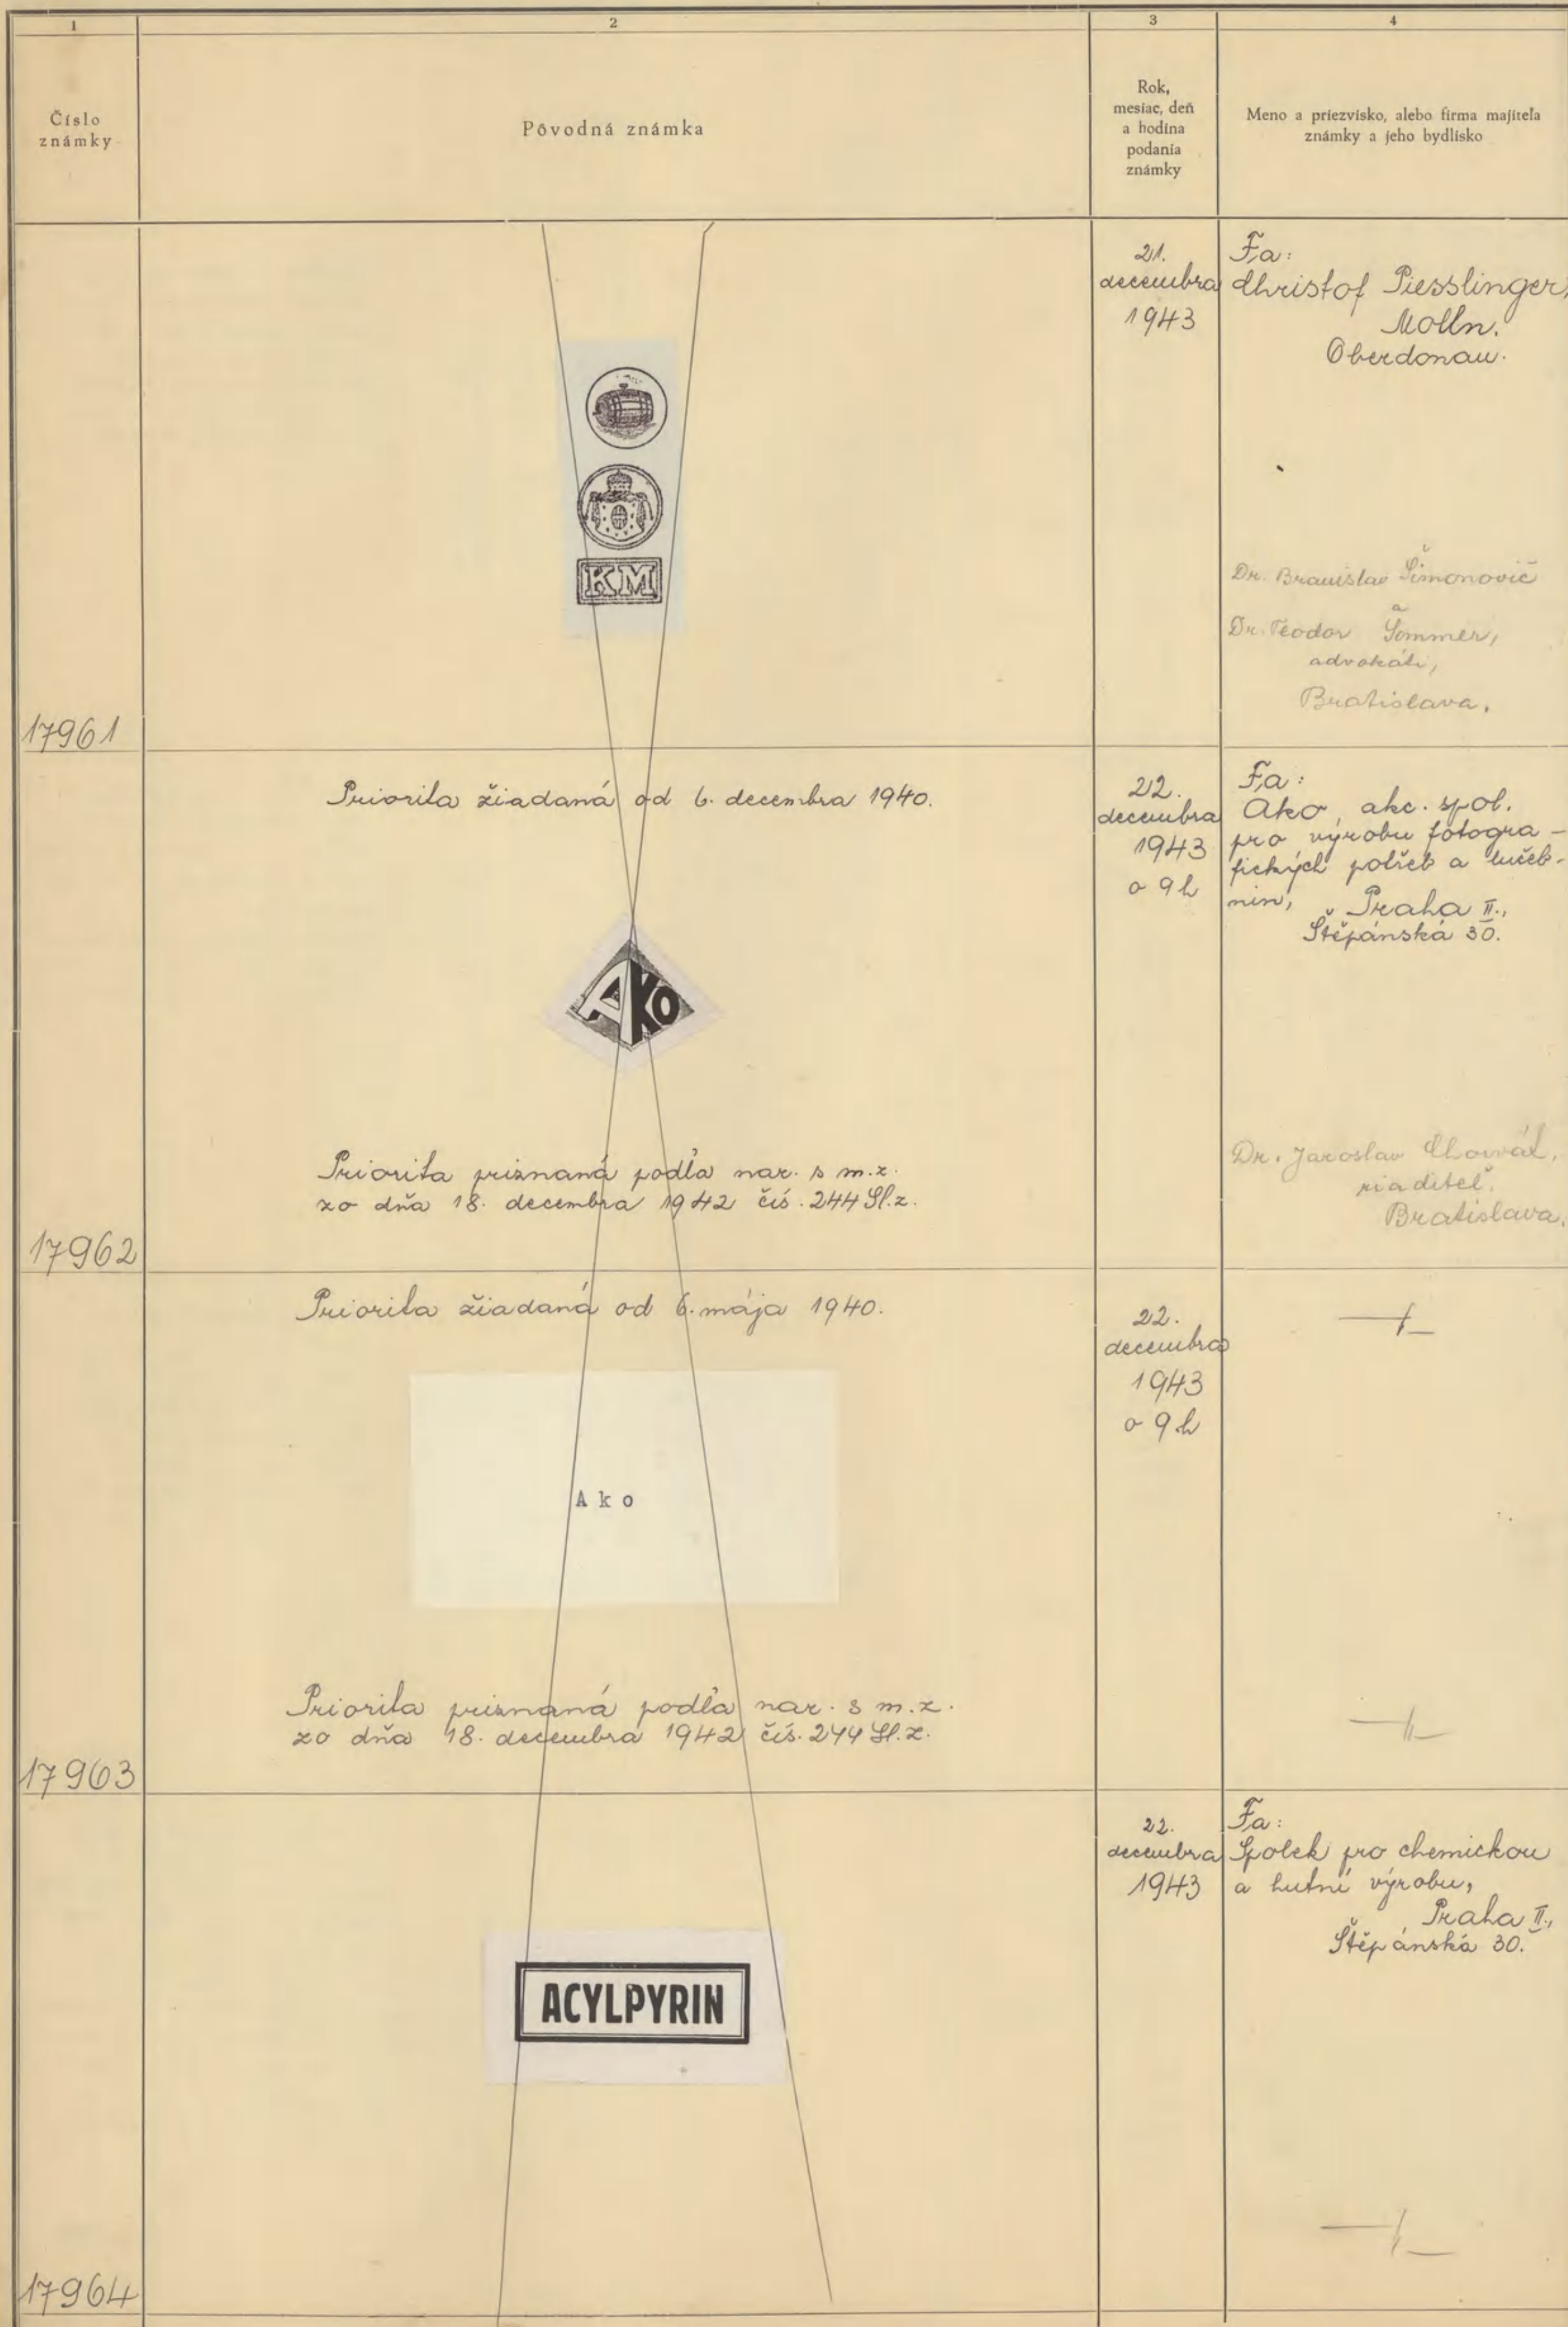 1
2
3
4
Číslo
známky
Pôvodná známka
Rok,
mesiac, deň
a hodina
podania
známky
Meno a priezvisko, alebo firma majiteľa
známky a jeho bydlisko
17961
KM
21.
decembra
1943
Fa:
Christof Piesslinger,
Molln.
Oberdonau.
Dr. Branislav Šimonovič
a
Dr. Teodor Sommer,
advokáti,
Bratislava.
17962
Priorita žiadaná od 6. decembra 1940.
AKO
Priorita priznaná podľa nar. s m.z.
zo dňa 18. decembra 1942 čís. 244 Sl.z.
22.
decembra
1943
o 9 h
Fa:
Ako, akc. spol.
pro výrobu fotogra-
fických potřeb a lučeb-
nin,
Praha II.,
Štěpánská 30.
Dr. Jaroslav
riaditeľ.
Bratislava.
17963
Priorita žiadaná od 6. mája 1940.
Ako
Priorita priznaná podľa nar. s m.z.
zo dňa 18. decembra 1942 čís. 244 Sl.z.
22.
decembra
1943
o 9 h
—"—
—"—
17964
ACYLPYRIN
22.
decembra
1943
Fa:
Spolek pro chemickou
a hutní výrobu,
Praha II.,
Štěpánská 30.
—"—